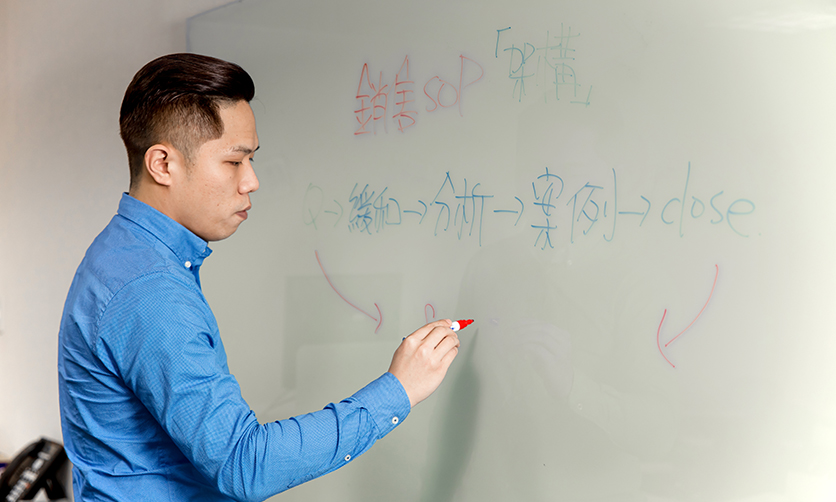 銷售SOP「架構」
Q→緩和→分析→案例→close